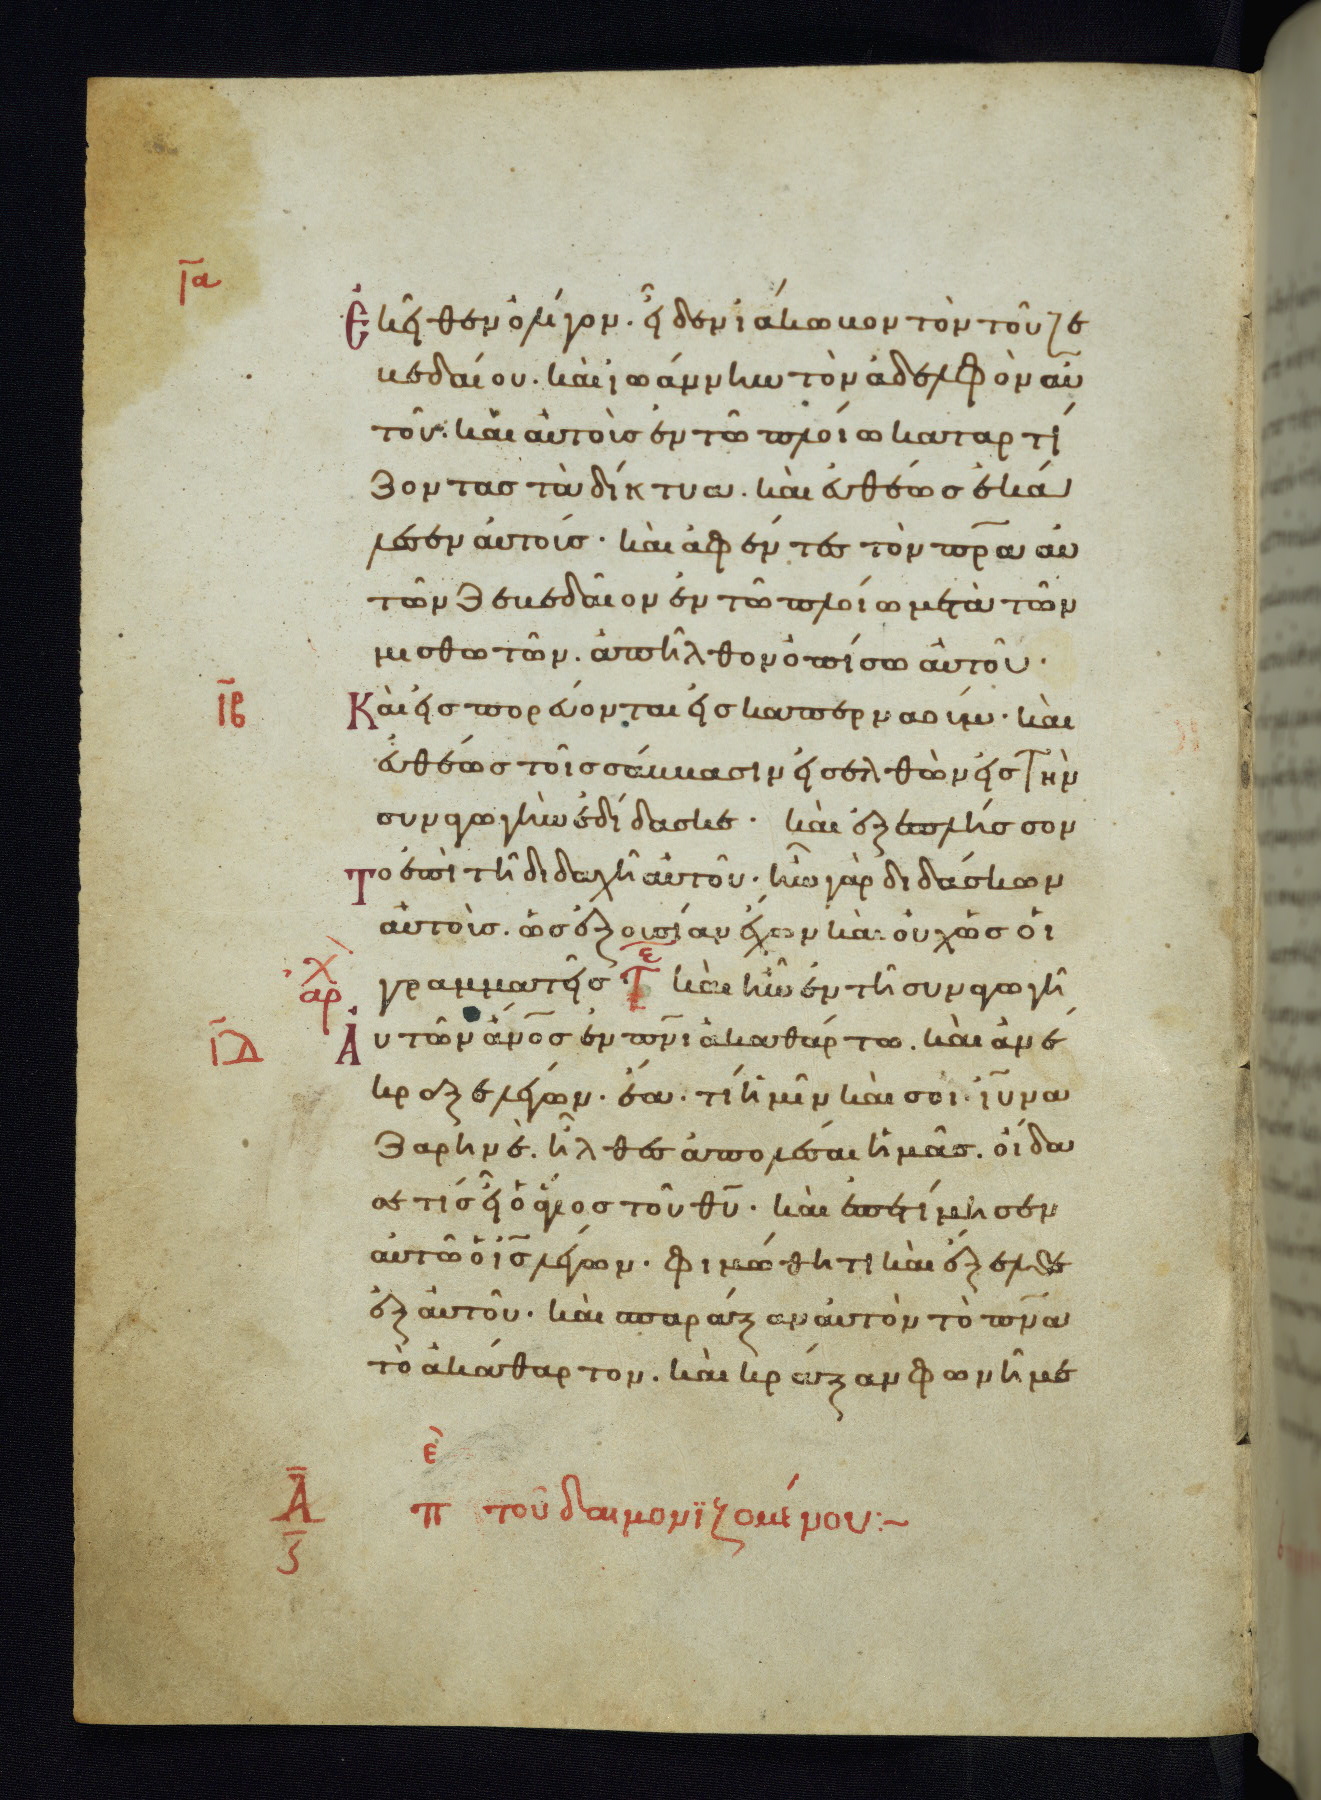 ια
Ἐκεῖθεν ὀλίγον. εἶδεν ἰάκωβον τὸν τοῦ ζε
βεδαίου. καὶ ἰωάννην τὸν ἀδελφὸν αὐ
τοῦ. καὶ αὐτοὺσ ἐν τῶ πλοίω καταρτί
ζοντασ τὰ δίκτυα. καὶ εὐθέωσ ἐκά
λεσεν αὐτούσ. καὶ ἀφέντεσ τὸν πρ̅α αὐ
τῶν ζεβεδαῖον ἐν τῶ πλοίω μετὰ τῶν
μισθωτῶν. ἀπῆλθον ὀπίσω αὐτοῦ.
ιβ Καὶ εἰσπορεύονται εἰσ καπερναούμ. καὶ
εὐθέωσ τοῖσ σάββασιν εἰσελθὼν εἰσ τὴν
συναγωγὴν ἐδίδασκε. καὶ ἐξεπλήσσον
Το ἐπὶ τῆ διδαχῆ αὐτοῦ. ἦν γὰρ διδάσκων
αὐτοὺσ. ὡσ ἐξουσίαν ἔχων καὶ οὐχ ὡσ οἱ
αρχ γραμματεῖσ τε καὶ ἦν ἐν τῆ συναγωγῆ
ιδ Αὐτῶν ἄν̅οσ ἐν πν̅ι ἀκαθάρτω. καὶ ἀνέ
κραξε λέγων. ἔα. τί ἡμῖν καὶ σοὶ ἰυ̅ να
ζαρηνέ. ἦλθεσ ἀπολέσαι ἡμᾶσ. οἶδα
σε τίσ εἶ ὁ ἅγιοσ τοῦ θυ̅. καὶ ἐπετίμησεν
αὐτῶ ὁ ἰσ̅ λέγων. φιμώθητι καὶ ἔξελθε
ἐξ αὐτοῦ. καὶ σπαράξαν αὐτὸν τὸ πν̅α
τὸ ἀκάθαρτον. καὶ κράξαν φωνῆ με
Α ζ
πε τοῦ δαιμονϊζομένου:~